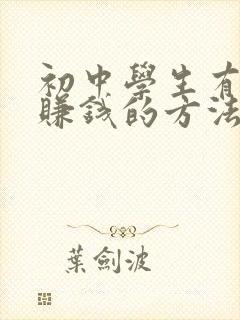 初中學生有
賺錢的方法
葉劍波